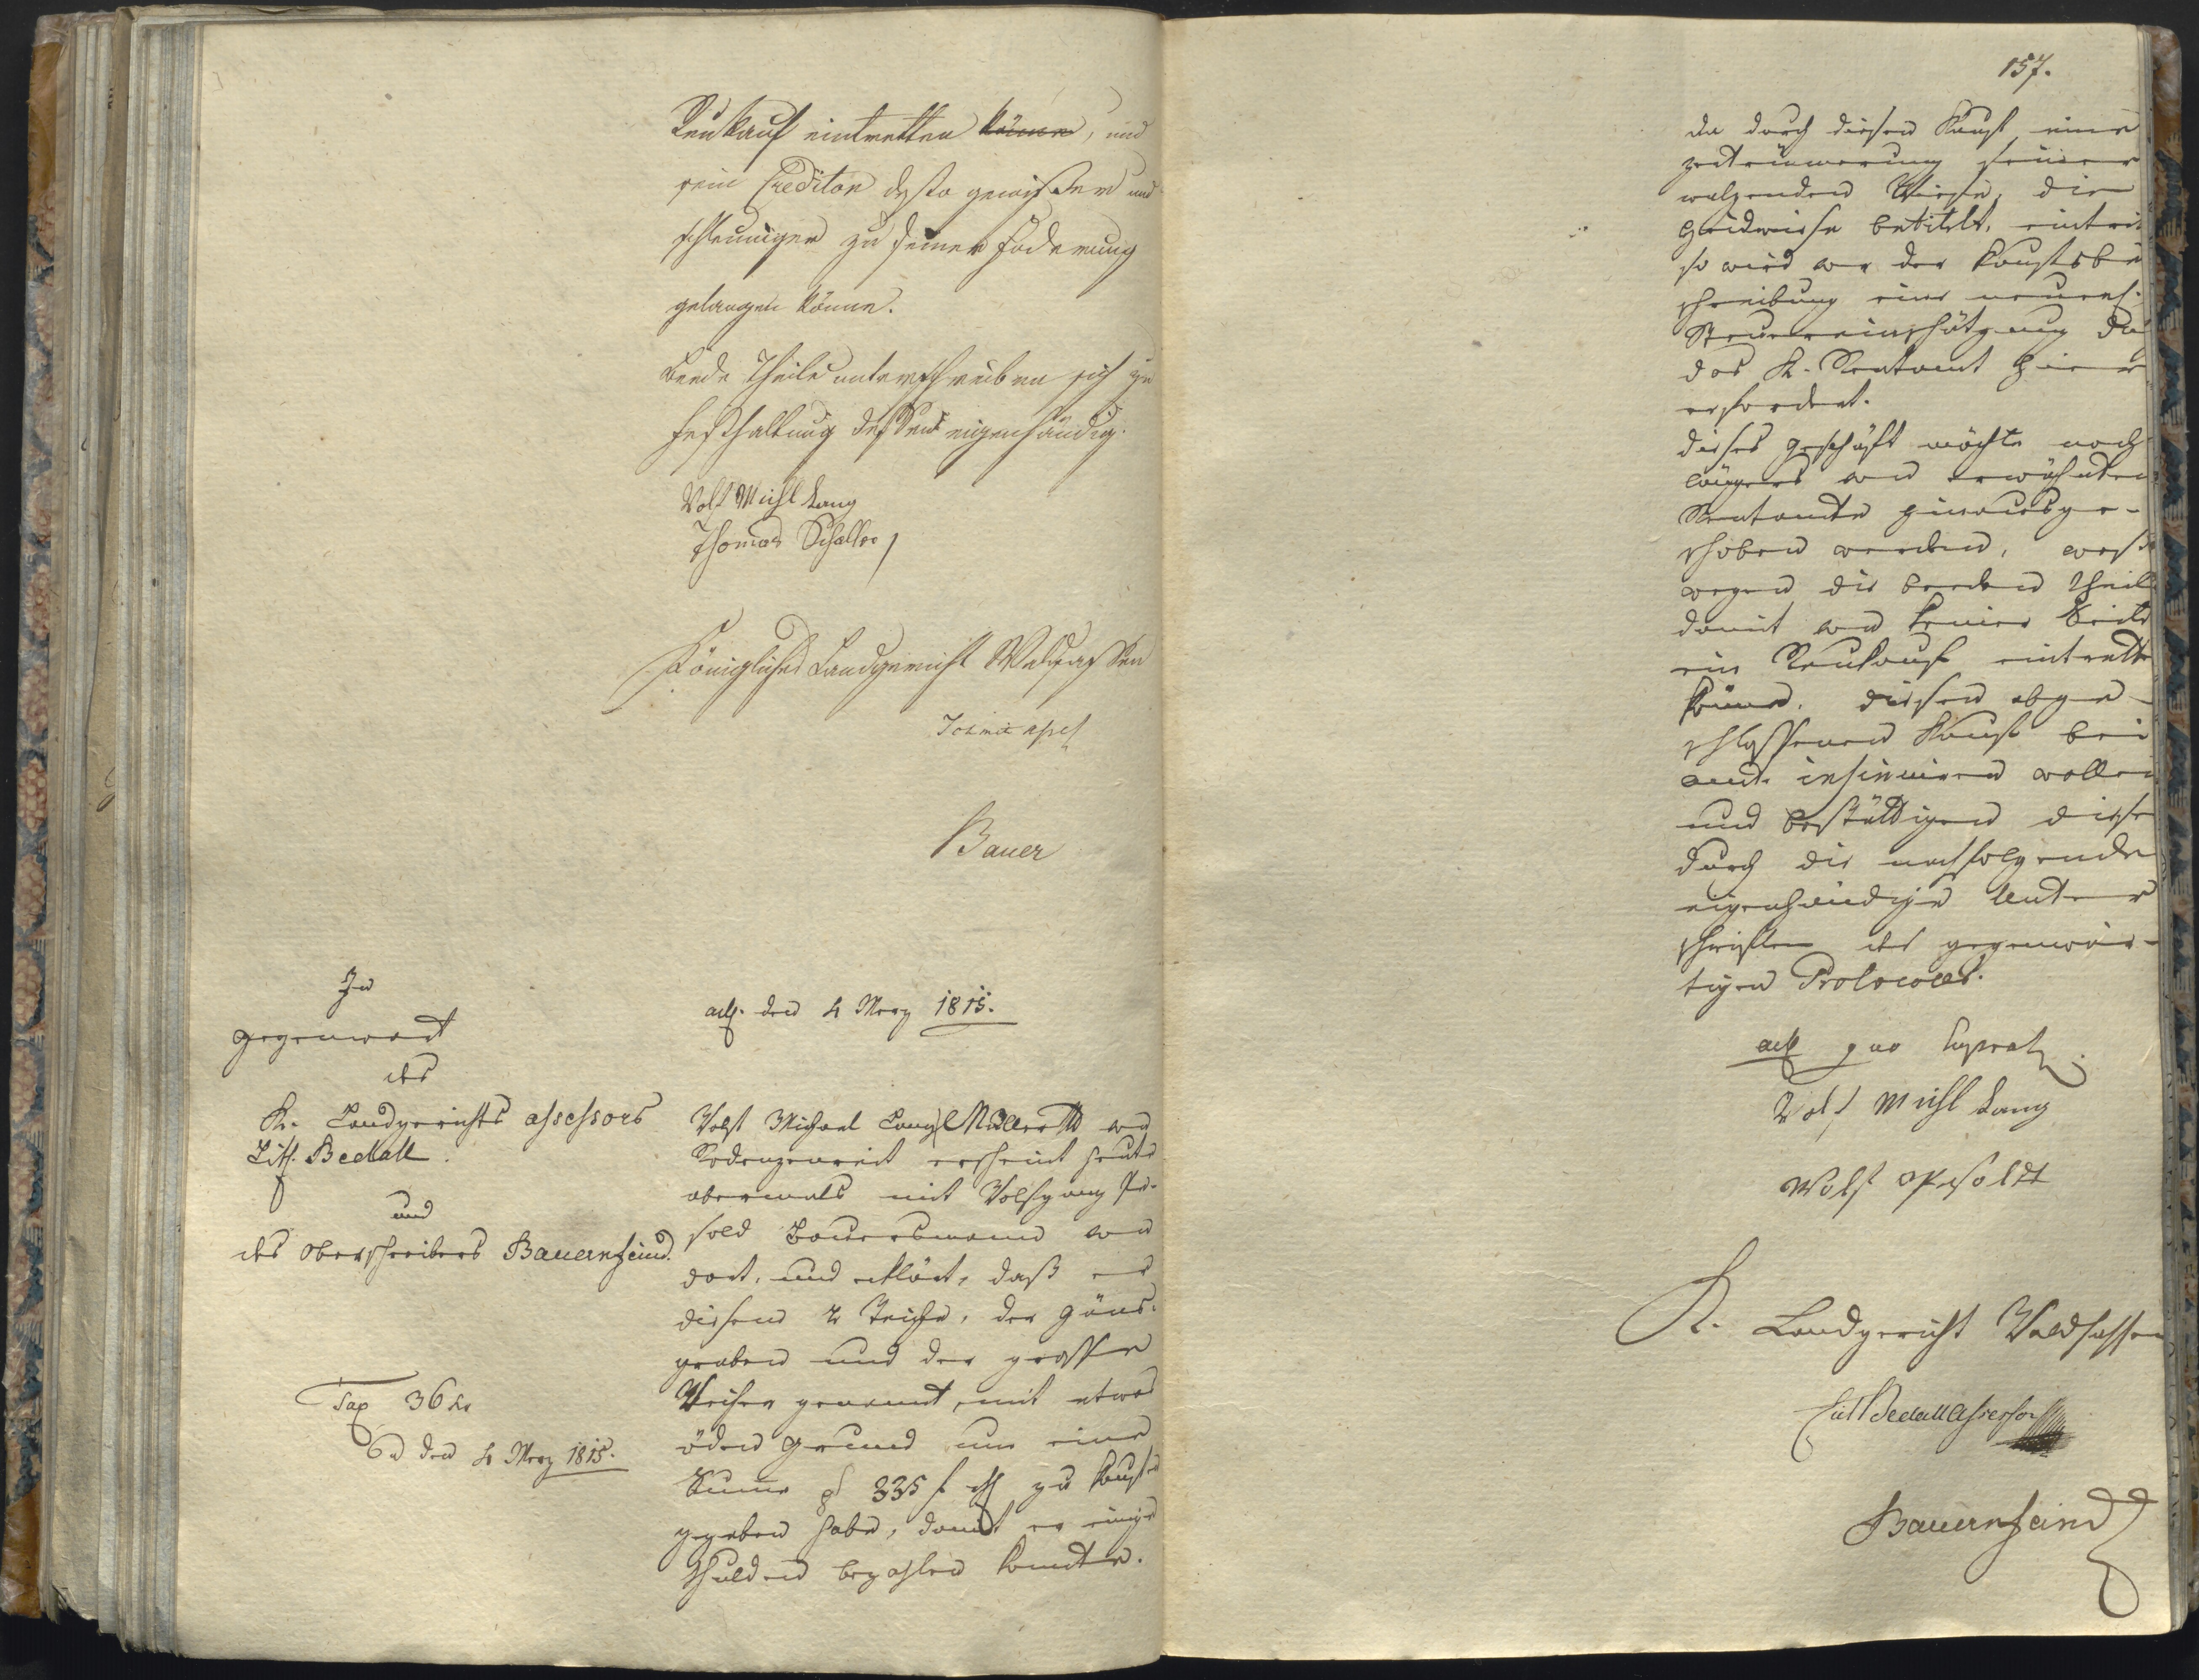 Reukauf eintretten könne, und
sein Creditor desto gewisser und
schleuniger zu seiner Foderung
gelangen könne.
Beede Theile unterschreiben sich zu
Festhaltung dessen eigenhändig.
Wolf Michl Lang
Thomas Schaller
Königliches Landgericht Waldsassen
Bauer
In
gegenwart
des
K. Landgerichts assessors
Titl. Bedall
und
des Oberschreibers Bauernfeind.
Tax 36 kr
den 4 Merz 1815.
act. den 4 Merz 1815.
Wolf Michael Lang Müller von
Rodenzenreit erscheint heute
abermals mit Wolfgang Pe-
sold Bauersmann von
dort, und erklärt, daß er
diesem 2 Teiche, der Gäns-
graben und der grosse
Weiher genannt, mit etwas
öden Grund um eine
Summe pr 335 f zu kaufen
gegeben habe, damit er einige
Schulden bezahlen konnte.
157.
da durch diesen Kauf eine
zertrümmerung seiner
walzenden Wiese, die
betitelt, eintrit
so wird vor der Kaufsbe
schreibung eine
Steuereinschätzung du
das K. Rentamt hier
erfordert.
dieses geschäft möchte noch
längers von erwähnten
Rentamte hinausge-
schoben werden, weß
wegen die beeden Theile
damit von keiner Seite
ein Reukauf eintrette
könne, diesen abge-
schlossenen Kauf bei
amt insinuiren wollen
und bestättigen diese
durch die nachfolgende
eigenhändige Unter
schriften des gegenwär-
tigen Protocolls.
act quo supra
Wolf Michl Lang
Wolf Pesoldt
K. Landgericht Waldsassen
Bedall Assessor
Bauernfeind